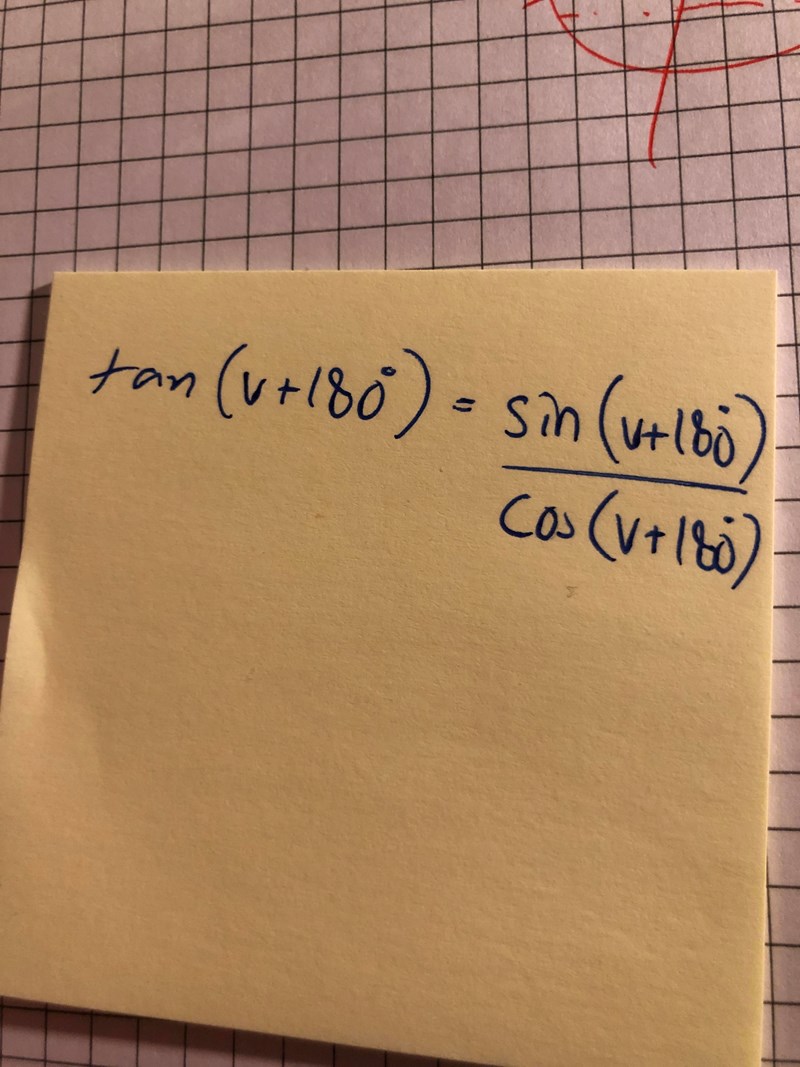 tan (v+180°) = sin (v+180°)
cos (v+180°)